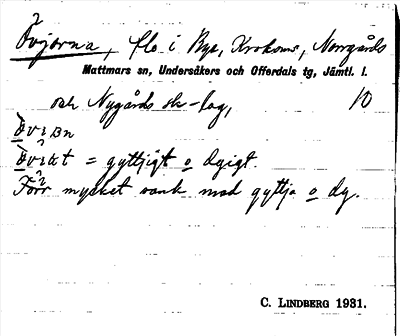 Övjorna, flo i Bye, Krokoms, Norrgårds
Mattmars sn, Undersåkers och Offerdals tg, Jämtl. l.
och Nygårds sk-lag, 10
= gyttjigt o dyigt.
Förr mycket vank med gyttja o dy.
C. LINDBERG 1931.